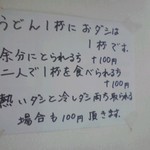 うどん1杯におダシは
1杯です。
余分にとられる方 +100円
二人で1杯を食べられる方
+100円
熱いダシと冷しダシ両方取られる
場合も100円頂きます。